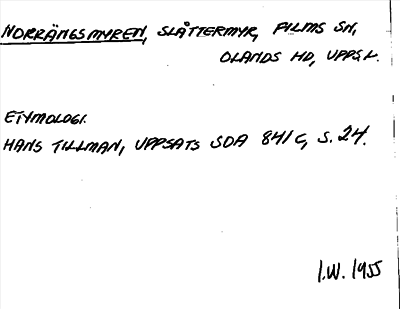 NORRÄNGSMYREN, SLÅTTERMYR, FILMS SN,
OLANDS HD, UPPS.L.
ETYMOLOGI.
HANS TILLMAN, UPPSATS SOA 841 C, S. 24.
I.W. 1955